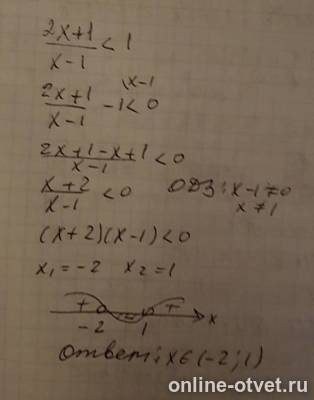 2x+1/x-1 < 1
2x+1/x-1 - 1\x-1 < 0
2x+1-x+1/x-1 < 0
x+2/x-1 < 0 ОДЗ: x-1≠0
x≠1
(x+2)(x-1)<0
x₁=-2 x₂=1
+ - + x
-2 1
Ответ: x∈(-2;1)
online-otvet.ru